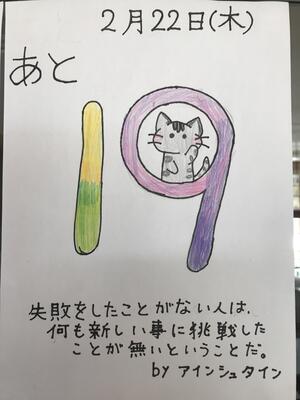 2月22日(木)
あと
19
失敗をしたことがない人は、
何も新しい事に挑戦した
ことが無いということだ。
by アインシュタイン